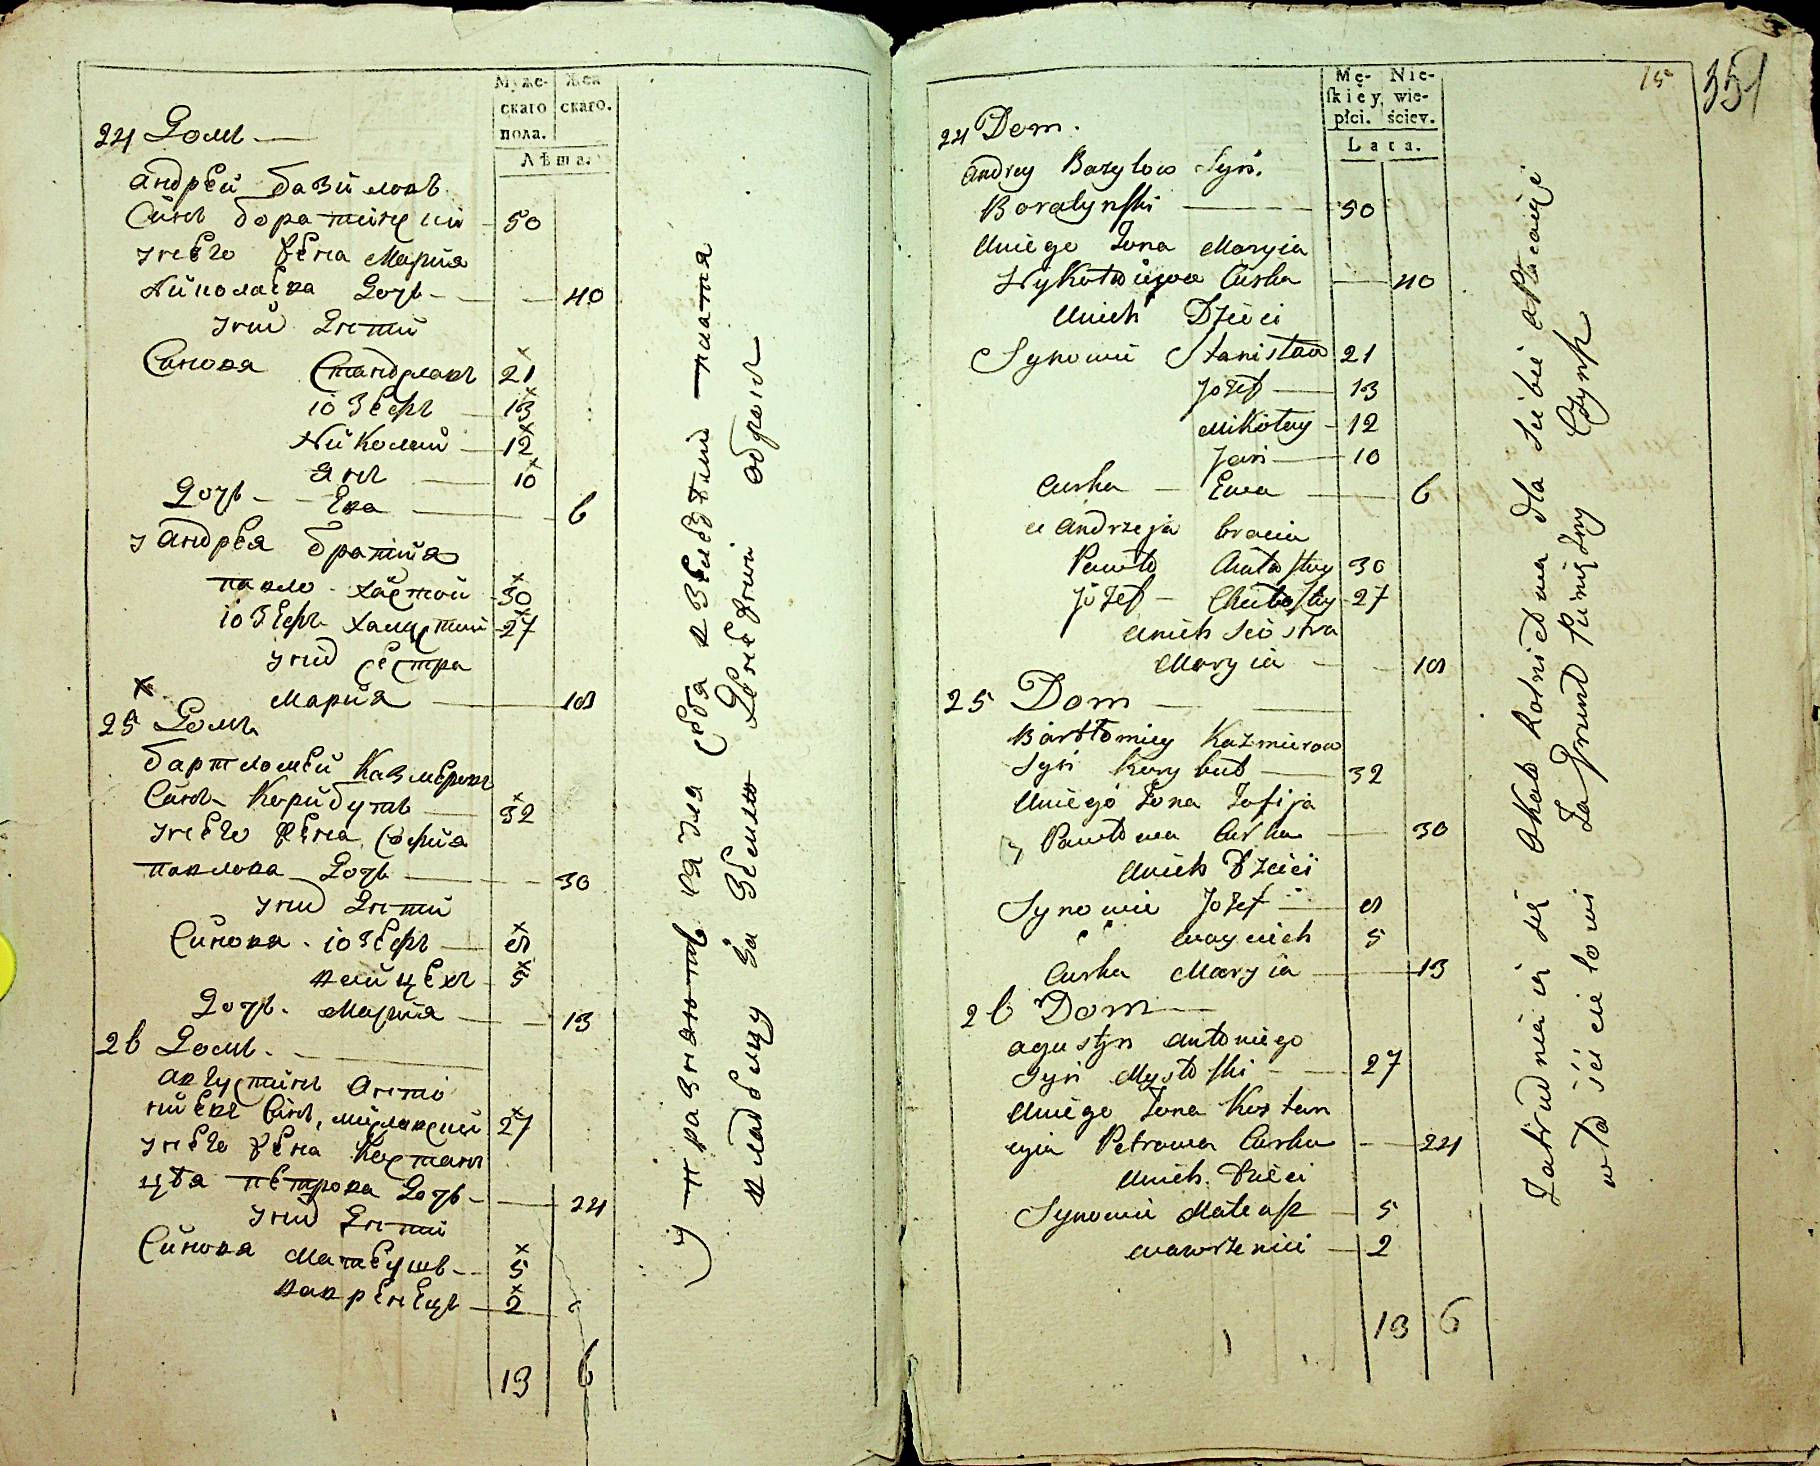 Муже-
скаго
пола.
Жен
скаго.
Лѣта.
24 Домъ —
андрей базиловъ
Синъ боратинский — 50
унего жена Мария
Николаева Дочь — — 40
унихъ Дети
Синовя Станславъ 21
іозефъ — 13
Николай — 12
янъ — 10
Дочь — Ева — 6
у андрея братия
павло 30
іозефъ 27
унихъ сестра
Мария — 18
25 Домъ
бартломей Казмеровъ
Синъ Корибутъ — 32
унего жена София
павлова Дочь — — 30
унихъ Дети
Синовя іозефъ — 8
войцехъ — 5
Дочь Мария — — 13
26 Домъ —
августинъ Анто
ниевъ Синъ, мисловский 27
унего жена Констанъ
цѣя петрова Дочь — 24
унихъ Дети
Синовя Матеушъ — 5
вавренецъ — 2
13 6
упражнюютъ ся для себя взємлѣдѣлии платя
владѣлцу за землю Денежний оброкъ
15
351
Mę-
skiéy
płci.
Nie-
wie-
ściey.
Lata.
24 Dom.
Andrzy Bazylow Syn.
Boratynski — 50
Uniego Zona Maryia
Nykołaiewa Curka — 40
Unich Dzieci
Synowie Stanisław 21
Jozef — 13
Mikołay — 12
Jan — 10
Curka — Ewa — 6
u Andrzeja bracia
Paweł 30
Jozef — 27
Unich Siostra
Maryia — 18
25 Dom —
Bartłomiey Kazmierow
Syn Korybut — 32
Uniego Zona Zofija
Pawłowa Curka — 30
Unich Dzieci
Synowie Jozef — 8
Woyciech 5
Curka Maryia — 13
26 Dom —
Agustyn Antoniego
Syn Mysłoski — 27
Uniego Zona Kostan
cyia Petrowa Curka — 24
Unich Dzieci
Synowie Mateusz — 5
Wawrzeniec — 2
13 6
Zatrudniaią się Okało Rolnictwa dla siebie a Płacący
właścicielowi Za Grunt Pinięzny Czynsz